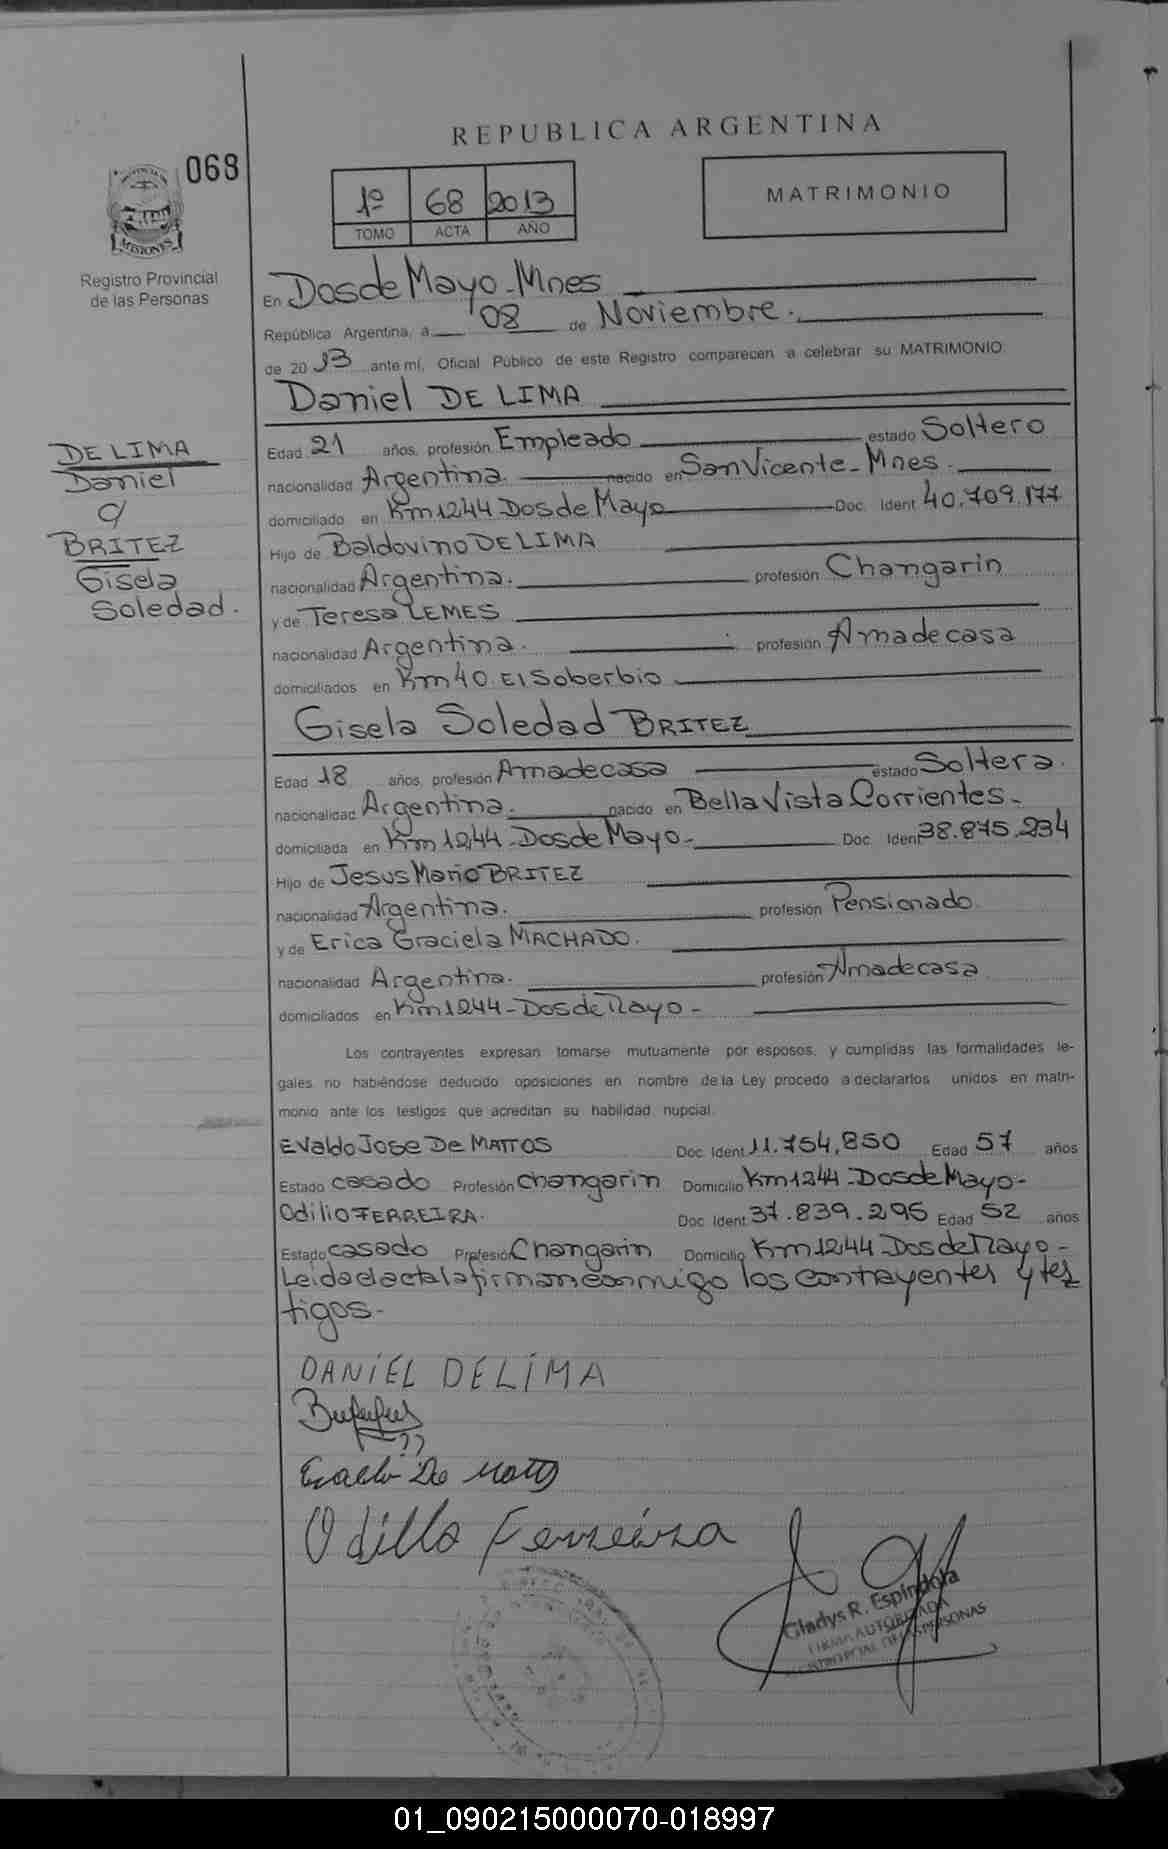 REPUBLICA ARGENTINA
068
1º 68 2013
TOMO ACTA AÑO
MATRIMONIO
MISIONES
Registro Provincial
de las Personas
En Dos de Mayo - Mnes
República Argentina, a 08 de Noviembre.
de 2013 ante mí, Oficial Público de este Registro comparecen a celebrar su MATRIMONIO
Daniel DE LIMA
DE LIMA
Daniel
c/
BRITEZ
Gisela
Soledad.
Edad 21 años, profesión Empleado estado Soltero
nacionalidad Argentina. nacido en San Vicente - Mnes.
domiciliado en Km 1244 Dos de Mayo Doc. Ident 40.709.177
Hijo de Baldovino DE LIMA
nacionalidad Argentina. profesión Changarin
y de Teresa LEMES
nacionalidad Argentina. profesión Ama de casa
domiciliados en Km 40. El Soberbio
Gisela Soledad BRITEZ
Edad 18 años, profesión Ama de casa estado Soltera.
nacionalidad Argentina. nacido en Bella Vista Corrientes -
domiciliada en Km 1244 - Dos de Mayo - Doc. Ident 38.875.234
Hijo de Jesus Mario BRITEZ
nacionalidad Argentina. profesión Pensionado.
y de Erica Graciela MACHADO.
nacionalidad Argentina. profesión Ama de casa
domiciliados en Km 1244 - Dos de Mayo -
Los contrayentes expresan tomarse mutuamente por esposos, y cumplidas las formalidades le-
gales no habiéndose deducido oposiciones en nombre de la Ley procedo a declararlos unidos en matri-
monio ante los testigos que acreditan su habilidad nupcial.
Evaldo Jose De MATTOS Doc. Ident 11.754.850 Edad 57 años
Estado casado Profesión changarin Domicilio Km 1244 - Dos de Mayo -
Odilio FERREIRA. Doc. Ident 37.839.295 Edad 52 años
Estado casado Profesión Changarin Domicilio Km 1244 Dos de Mayo -
Leida el acta la firman conmigo los contrayentes y tes
tigos.-
DANIEL DE LIMA
De Matto
Odillo Ferreira
Gladys R. Espindola
FIRMA AUTORIZADA
PERSONAS
01_090215000070-018997